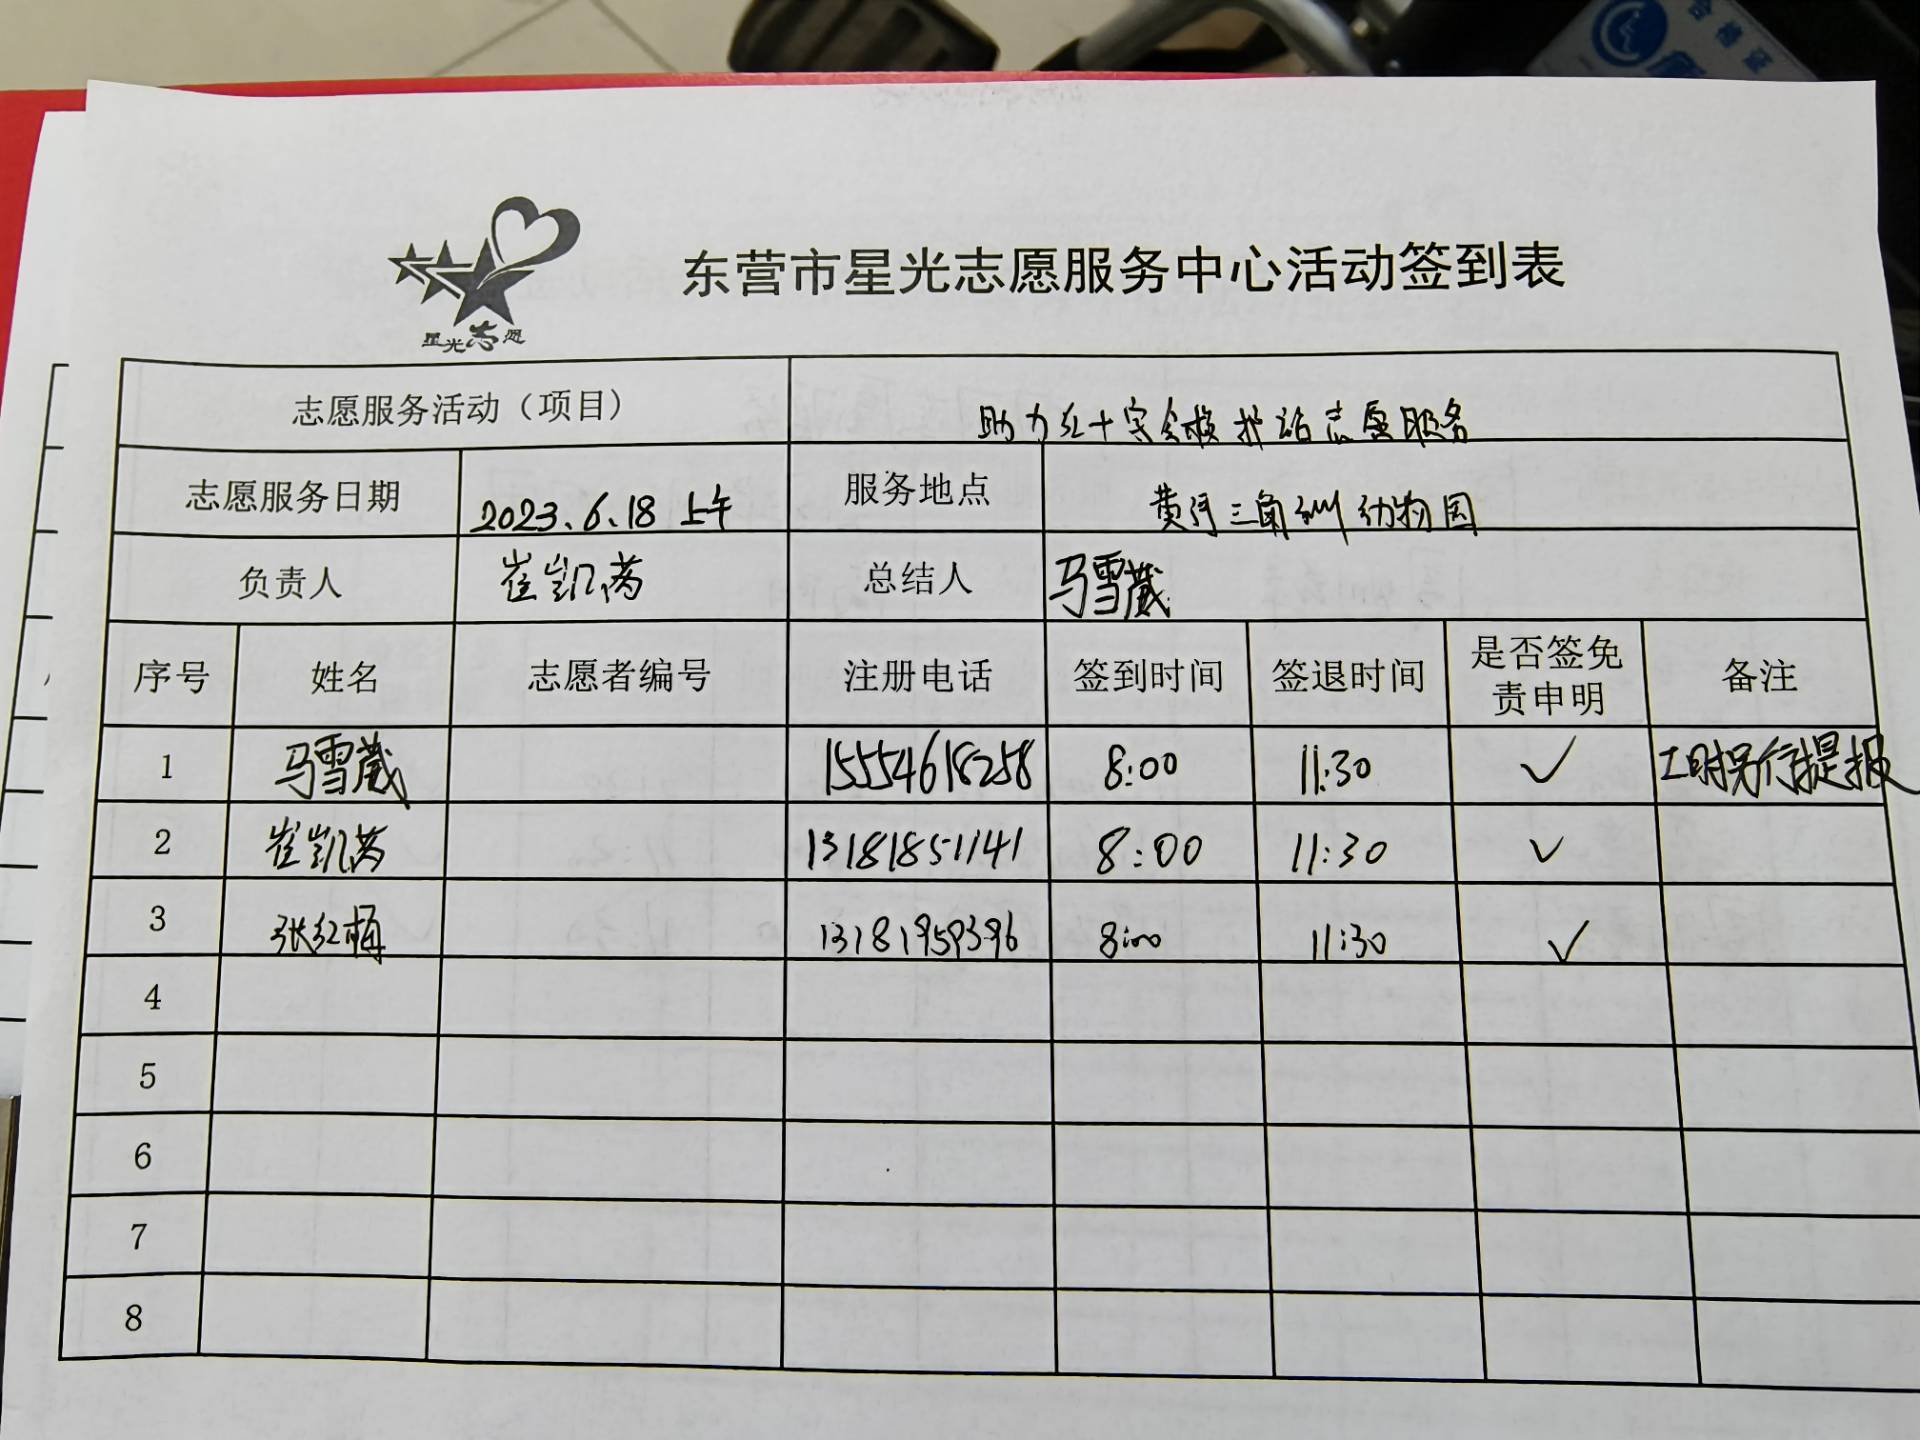 合格证
东营市星光志愿服务中心活动签到表
星光志愿
志愿服务活动（项目） 助力红十字会救护站志愿服务
志愿服务日期 2023.6.18 上午 服务地点 黄河三角洲动物园
负责人 崔凯芮 总结人 马雪葳
序号 姓名 志愿者编号 注册电话 签到时间 签退时间 是否签免责申明 备注
1 马雪葳 15554618258 8:00 11:30 ✓ 工时另行提报
2 崔凯芮 13181851141 8:00 11:30 ✓
3 张红梅 13181959396 8:00 11:30 ✓
4
5
6
7
8